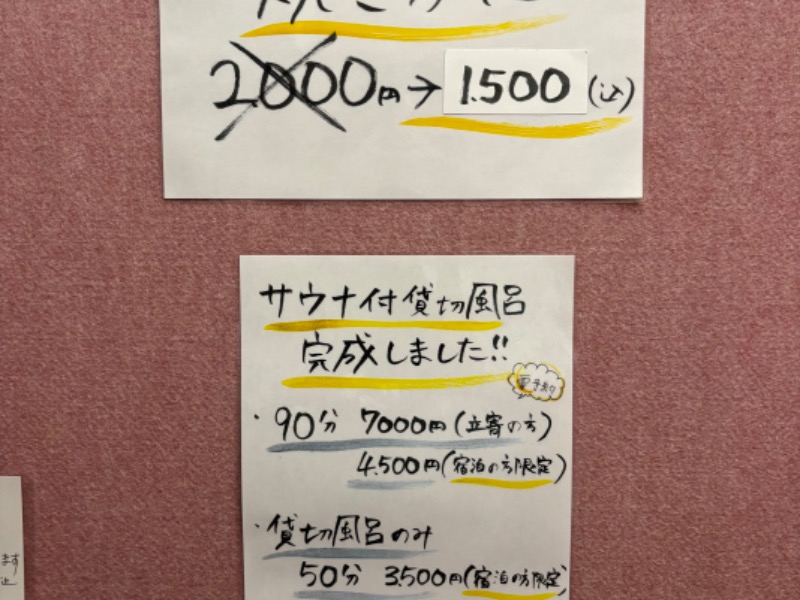 2000円→1.500(込)
サウナ付貸切風呂
完成しました!!
要予約
・90分 7000円(立寄の方)
4.500円(宿泊の方限定)
・貸切風呂のみ
50分 3.500円(宿泊の方限定)
ます